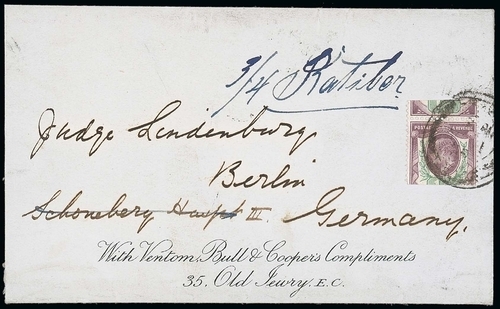 3/4 Ratibor
POSTAGE & REVENUE
Judge Lindenburg
Berlin
Schöneberg Haupt III. Germany.
With Ventom, Bull & Cooper's Compliments
35, Old Jewry, E.C.